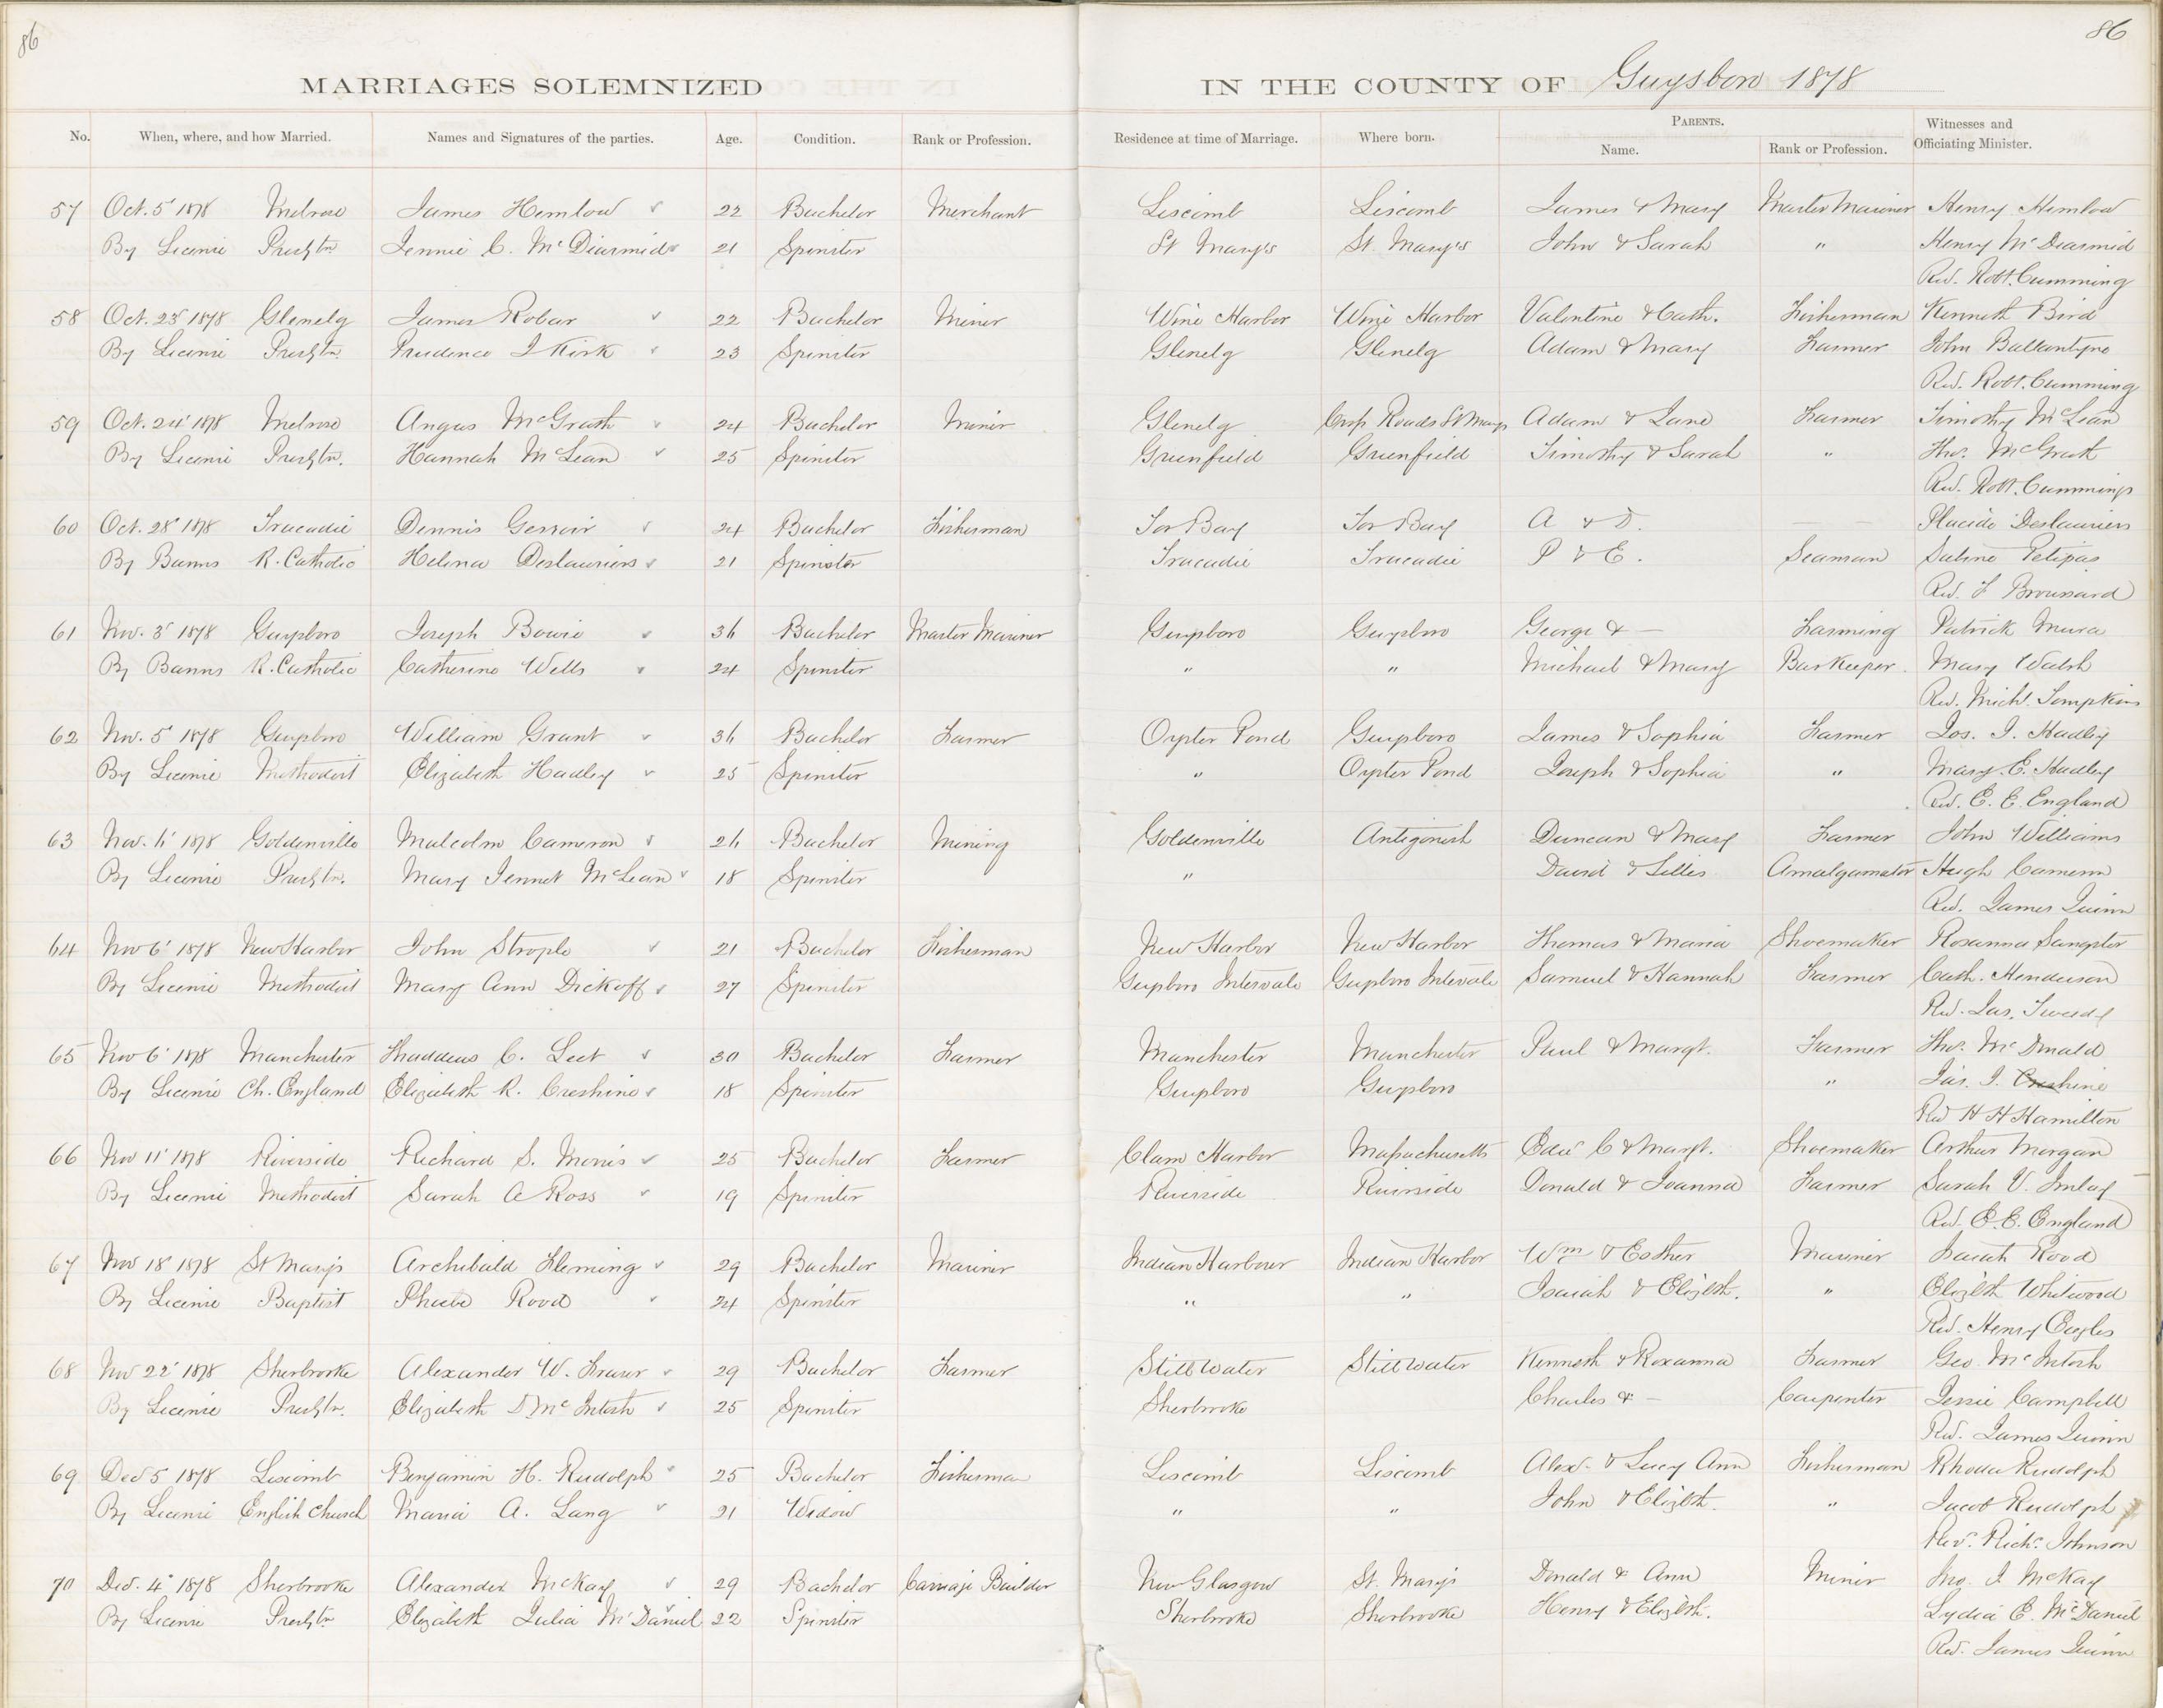 86
86
MARRIAGES SOLEMNIZED IN THE COUNTY OF Guysboro 1878
No. When, where, and how Married. Names and Signatures of the parties. Age. Condition. Rank or Profession. Residence at time of Marriage. Where born. PARENTS. Name. Rank or Profession. Witnesses and Officiating Minister.
57 Oct. 5 1878 Melrose James Hemlow 22 Bachelor Merchant Liscomb Liscomb James & Mary Master Mariner Henry Hemlow
By License Presbtn. Jennie C. McDiarmid 21 Spinster St Mary's St. Mary's John & Sarah " Henry McDiarmid
Rev. Robt. Cumming
58 Oct. 23 1878 Glenelg James Robar 22 Bachelor Miner Wine Harbor Wine Harbor Valentine & Cath. Fisherman Kenneth Bird
By License Presbtn. Prudence J Kirk 23 Spinster Glenelg Glenelg Adam & Mary Farmer John Ballantyne
Rev. Robt. Cumming
59 Oct. 24 1878 Melrose Angus McGrath 24 Bachelor Miner Glenelg Cross Roads St Marys Adam & Jane Farmer Timothy McLean
By License Presbtn. Hannah McLean 25 Spinster Greenfield Greenfield Timothy & Sarah " Thos. McGrath
Rev. Robt. Cumming
60 Oct. 28 1878 Tracadie Dennis Gerroir 24 Bachelor Fisherman Tor Bay Tor Bay A & D. — — Placide Deslauriers
By Banns R. Catholic Helena Deslauriers 21 Spinster Tracadie Tracadie P & E. Seaman Sabine Petipas
Rev. F Broussard
61 Nov. 3 1878 Guysboro Joseph Bowie 36 Bachelor Master Mariner Guysboro Guysboro George & — Farming Patrick Mura
By Banns R. Catholic Catherine Wells 24 Spinster " " Michael & Mary Barkeeper. Mary Walsh
Rev. Michl. Tompkins
62 Nov. 5 1878 Guysboro William Grant 36 Bachelor Farmer Oyster Pond Guysboro James & Sophia Farmer Jos. I. Hadley
By License Methodist Elizabeth Hadley 25 Spinster " Oyster Pond Joseph & Sophia " Mary E. Hadley
Rev. E. E. England
63 Nov. 6 1878 Goldenville Malcolm Cameron 26 Bachelor Mining Goldenville Antigonish Duncan & Mary Farmer John Williams
By License Presbtn. Mary Jennet McLean 18 Spinster " David & Lillis Amalgamator Hugh Cameron
Rev. James Quinn
64 Nov 6 1878 New Harbor John Strople 21 Bachelor Fisherman New Harbor New Harbor Thomas & Maria Shoemaker Rosanna Sangster
By License Methodist Mary Ann Dickoff 27 Spinster Guysboro Intervale Guysboro Intervale Samuel & Hannah Farmer Cath. Henderson
Rev. Jas. Tweedy
65 Nov 6 1878 Manchester Thaddeus C. Leet 30 Bachelor Farmer Manchester Manchester Paul & Margt. Farmer Thos. McDonald
By License Ch. England Elizabeth R. Creshine 18 Spinster Guysboro Guysboro " Jas. I. Creshine
Rev H H Hamilton
66 Nov 11 1878 Riverside Richard S. Morris 25 Bachelor Farmer Clam Harbor Massachusetts Edw C & Margt. Shoemaker Arthur Morgan
By License Methodist Sarah A Ross 19 Spinster Riverside Riverside Donald & Joanna Farmer Sarah V. Imlay
Rev. E. E. England
67 Nov 18 1878 St Marys Archibald Fleming 29 Bachelor Mariner Indian Harbour Indian Harbor Wm & Esther Mariner Isaiah Rood
By License Baptist Phebe Rood 24 Spinster " " Isaiah & Elizbth. " Elizbth Whitwood
Rev. Henry Eagles
68 Nov 22 1878 Sherbrooke Alexander W. Fraser 29 Bachelor Farmer Stillwater Stillwater Kenneth & Roxanna Farmer Geo. McIntosh
By License Presbtn. Elizabeth D McIntosh 25 Spinster Sherbrooke Charles & — Carpenter Jessie Campbell
Rev. James Quinn
69 Dec 5 1878 Liscomb Benjamin H. Rudolph 25 Bachelor Fisherman Liscomb Liscomb Alex. & Lucy Ann Fisherman Rhoda Rudolph
By License English Church Maria A. Lang 21 Widow " " John & Elizbth. " Jacob Rudolph
Rev. Richd. Johnson
70 Dec. 4 1878 Sherbrooke Alexander McKay 29 Bachelor Carriage Builder New Glasgow St. Marys Donald & Ann Miner Jno. J McKay
By License Presbtn. Elizabeth Julia McDaniel 22 Spinster Sherbrooke Sherbrooke Henry & Elizbth. Lydia E. McDaniel
Rev. James Quinn